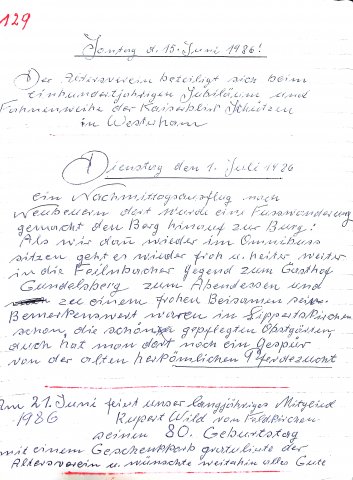 129
Sontag d. 15. Juni 1986!
Der Altersverein beteiligt sich beim
Einhundertjährigen Jubiläum und
Fahnenweihe der Kaiserblick Schützen
in Westerham
Dienstag den 1. Juli 1986
ein Nachmittagsausflug nach
Neubeuern dort wurde eine Fusswanderung
gemacht den Berg hinauf zur Burg!
Als wir dan wieder im Omnibuss
sitzen geht es wieder froh u. heiter weiter
in die Feilnbacher Gegend zum Gasthof
Gundelsberg zum Abendessen und
zu einem frohen Beisamen sein.
Bemerkenswert waren in Lippertskirchen
schon, die schönen gepflegten Obstgärten,
auch hat man dort noch ein Gespür
von der alten herkömlichen Pferdezucht
Am 21. Juni feiert unser langjähriges Mitglied
1986 Rupert Wild vom Feldkirchen
seinen 80. Geburtstag
mit einem Geschenkkorb gratulierte der
Altersverein u. wünschte weitahin alles Gute